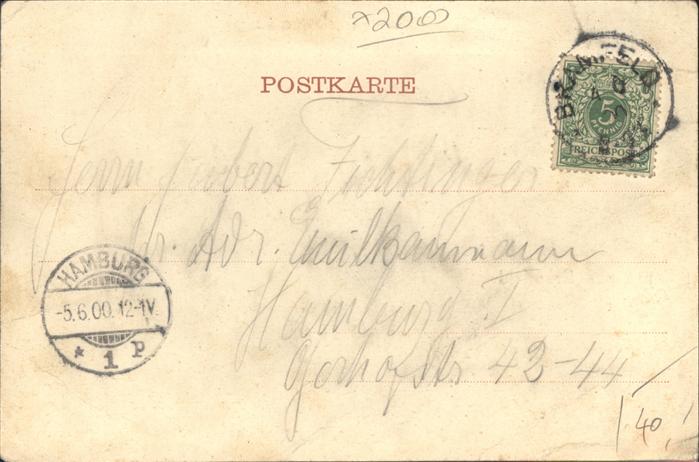 x2000
POSTKARTE
BRAMFELD
5
PFENNIG
REICHSPOST
Herrn Hubert
Adr. Emil Baumann
HAMBURG
-5.6.00.12-1V.
* 1 P
Hamburg I
42-44
1.40